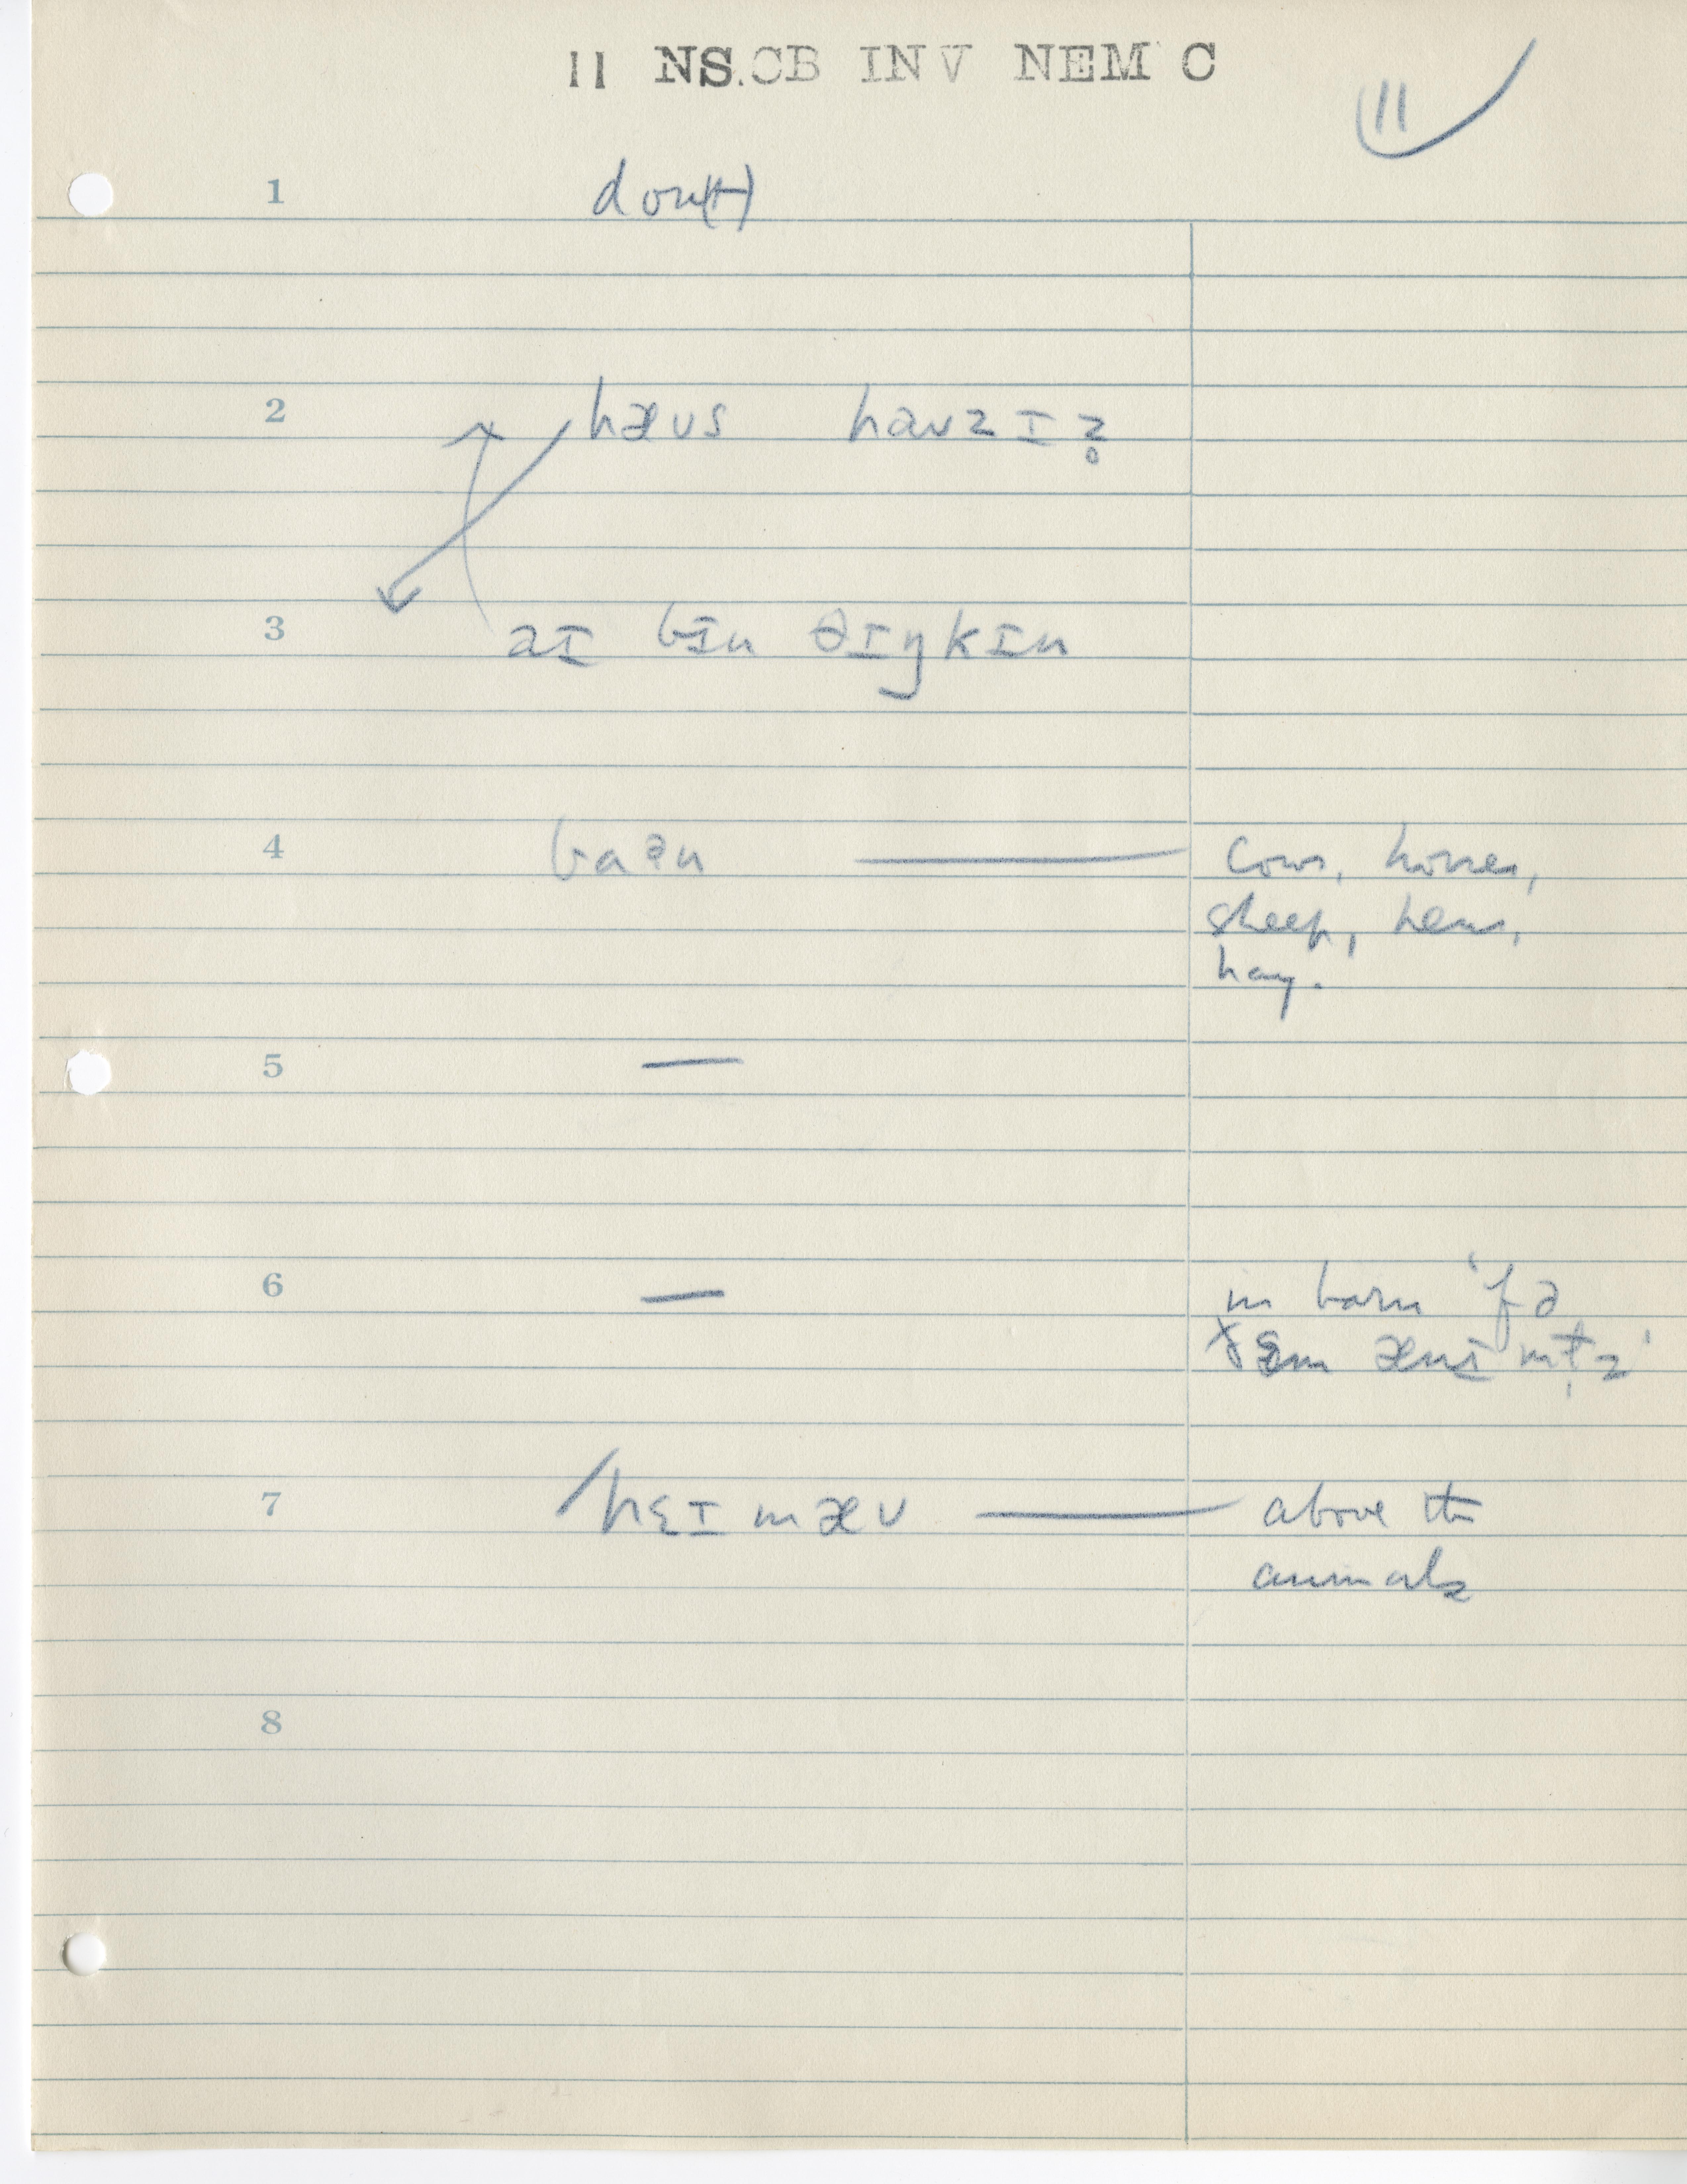 11 NS.CB INV NEM C
11
1 doʊn(t)
2 hæʊs haʊzɪz̥
3 aɪ bɪn θɪŋkɪn
4 baən — Cows, horses,
sheep, hens,
hay.
5 —
6 — in barn 'fə
ðɛm ænɪmḷz'
7 hɛɪmæʊ — above the
animals
8